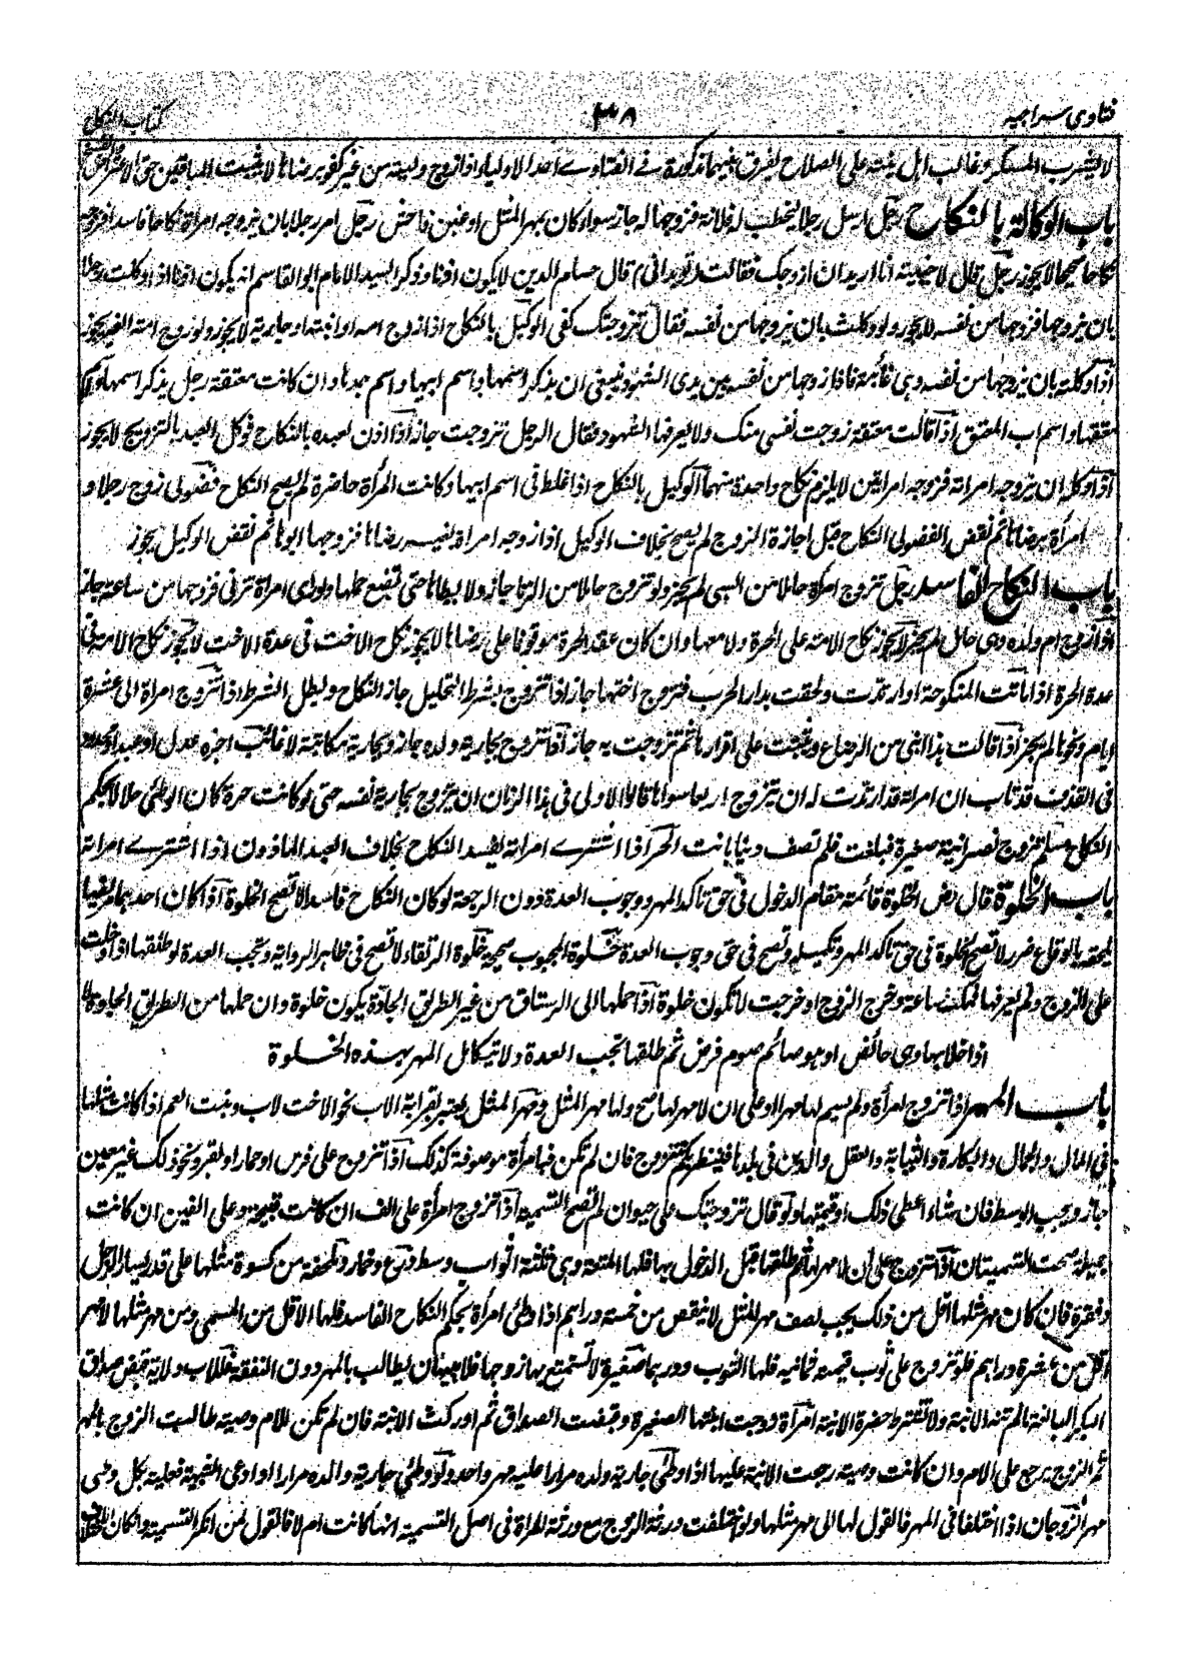 فتاوى سراجيه ٣٨ كتاب النكاح
لا يشرب المسكر وغالب اهل بيته على الصلاح يفرق بينهما مذكورة في الفتاوے احد الاولياء اذا زوج وليته من غير كفو برضاها لا يثبت للباقين حق الاعتراض
باب الوكالة بالنكاح رجل ارسل رجلا ليخطب له فلانة فزوجها له جاز سواء كان بمهر المثل او غبن فاحش رجل امر رجلا بان يزوجه امرأة نكاحا فاسدا فزوجه
نكاحا صحيحا لا يجوز رجل قال لاجنبية انا اريد ان ازوجك فقالت قال حسام الدين لا يكون اذنا وذكر السيد الامام ابو القاسم انه يكون اذنا اذا وكلت رجلا
بان يزوجها فزوجها من نفسه لا يجوز ولو وكلت بان يزوجها من نفسه فقال تزوجتك كفى الوكيل بالنكاح اذا زوج امه او ابنتها وجارية لا يجوز ولو زوج امة الغير يجوز
اذا وكلته بان يزوجها من نفسه وهي غائبة فاذا زوجها من نفسه بين يدى الشهود ينبغى ان يذكر اسمها واسم ابيها واسم جدها وان كانت معتقة رجل يذكر اسمها واسم
معتقها واسم اب المعتق اذا قالت معتقة زوجت نفسى منك ولا يعرفها الشهود فقال الرجل تزوجت جاز اذا اذن لعبده بالنكاح فوكل العبد بالتزويج لا يجوز
اذا وكله ان يزوجه امرأة فزوجه امرأتين لا يلزم نكاح واحدة منهما الوكيل بالنكاح اذا غلط فى اسم ابيها وكانت المرأة حاضرة لم يصح النكاح فضولى زوج رجلا و
امرأة برضاها ثم نقض الفضولى النكاح قبل اجازة الزوج لم يصح بخلاف الوكيل اذا زوجه امرأة بغير رضاها فزوجها ابوها ثم نقض الوكيل يجوز
باب النكاح الفاسد رجل تزوج امرأة حاملا من السبى لم يجز ولو تزوج حاملا من الزنا جاز ولا يطأها حتى تضع حملها ولو راى امرأة تزنى فزوجها من ساعته جاز
اذا زوج ام ولده وهى حامل لم يجز لا يجوز نكاح الامة على الحرة ولا معها وان كان عقد الحرة موقوفا على رضاها لا يجوز نكاح الاخت فى عدة الاخت لا يجوز نكاح الامة فى
عدة الحرة اذا ماتت المنكوحة او ارتدت ولحقت بدار الحرب فتزوج اختها جاز اذا تزوج بشرط التحليل جاز النكاح وبطل الشرط اذا تزوج امرأة الى عشرة
ايام ونحوها لم يجز اذا قالت هذا ابنى من الرضاع وثبتت على اقرارها ثم تزوجت به جاز اذا تزوج بجارية ولده جاز وبجارية مكاتبه لا غائب اخبره عدل او عبد او محدود
فى القذف قد تاب ان امرأته قد ارتدت له ان يتزوج اربعا سواها قالوا الاولى فى هذا الزمان ان يتزوج بجارية نفسه حتى لو كانت حرة كان الوطئ حلالا بحكم
النكاح مسلم تزوج نصرانية صغيرة فبلغت فلم تصف دينا بانت الحر اذا اشترے امرأته يفسد النكاح بخلاف العبد الماذون اذا اشترے امرأته
باب الخلوة قال رض الخلوة قائمة مقام الدخول فى حق تاكد المهر ووجوب العدة دون الرجعة لو كان النكاح فاسدا لا تصح الخلوة اذا كان احدهما مريضا
يلحقه بالوقاع ضرر لا تصح الخلوة فى حق تاكد المهر وتكميله وتصح فى حق وجوب العدة خلوة المجبوب صحيحة خلوة الرتقاء لا تصح فى ظاهر الرواية وتجب العدة لو طلقها اذا دخلت
على الزوج ولم يعرفها فمكثت ساعة وخرج الزوج او خرجت لا تكون خلوة اذا حملها الى الرستاق من غير الطريق الجادة يكون خلوة وان حملها من الطريق الجادة لا
اذا خلا بها وهى حائض او هو صائم صوم فرض ثم طلقها تجب العدة ولا يتكامل المهر بهذه الخلوة
باب المهر اذا تزوج امرأة ولم يسم لها مهرا او على ان لا مهر لها صح ولها مهر المثل ومهر المثل يعتبر بقرابة الاب نحو الاخت لاب وبنت العم اذا كانت مثلها
فى المال والجمال والبكارة والثيابة والعقل والدين فى بلدها فينظر بكم تتزوج فان لم تكن فبامرأة موصوفة كذلك اذا تزوج على فرس او حمار او بقر ونحو ذلك غير معين
جاز ويجب الوسط فان شاء اعطى ذلك او قيمتها ولو قال تزوجتك على حيوان لم تصح التسمية اذا تزوج امرأة على الف ان كانت قبيحة وعلى الفين ان كانت
جميلة صحت التسميتان اذا تزوج على ان لا مهر لها ثم طلقها قبل الدخول بها فلها المتعة وهى ثلثة اثواب وسط درع وخمار وملحفة من كسوة مثلها على قدر يسار الرجل
وفقره فان كان مهر مثلها اقل من ذلك يجب نصف مهر المثل لا ينقص من خمسة دراهم اذا وطئ امرأة بحكم النكاح الفاسد فلها الاقل من المسمى ومن مهر مثلها لا مهر
اقل من عشرة دراهم فلو تزوج على ثوب قيمته ثمانية فلها الثوب ودرهما صغيرة لا يستمتع بها زوجها فلابيها ان يطالب بالمهر دون النفقة للاب ولاية قبض صداق
البكر البالغة ما لم تنه الابنة ولا تشترط حضرة الابنة امرأة زوجت ابنتها الصغيرة وقبضت الصداق ثم ادركت الابنة فان لم تكن للام وصية طالبت الزوج بالمهر
ثم الزوج يرجع على الام وان كانت وصية رجعت الابنة عليها اذا وطئ جارية ولده مرارا عليه مهر واحد ولو وطئ جارية والده مرارا او ادعى الشبهة فعليه بكل وطى
مهر الزوجان اذا اختلفا فى المهر فالقول لها الى مهر مثلها ولو اختلفت ورثة الزوج مع ورثة المرأة فى اصل التسمية انها كانت ام لا فالقول لمن انكر التسمية وان كان